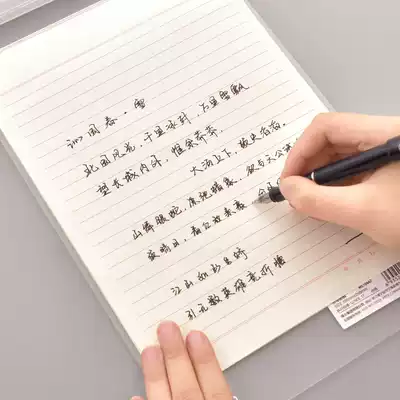 沁园春·雪
北国风光，千里冰封，万里雪飘
望长城内外，惟余莽莽　大河上下，顿失滔滔。
山舞银蛇，原驰蜡象，欲与天公
须晴日，看红妆素裹，
江山如此多娇
引无数英雄竞折腰